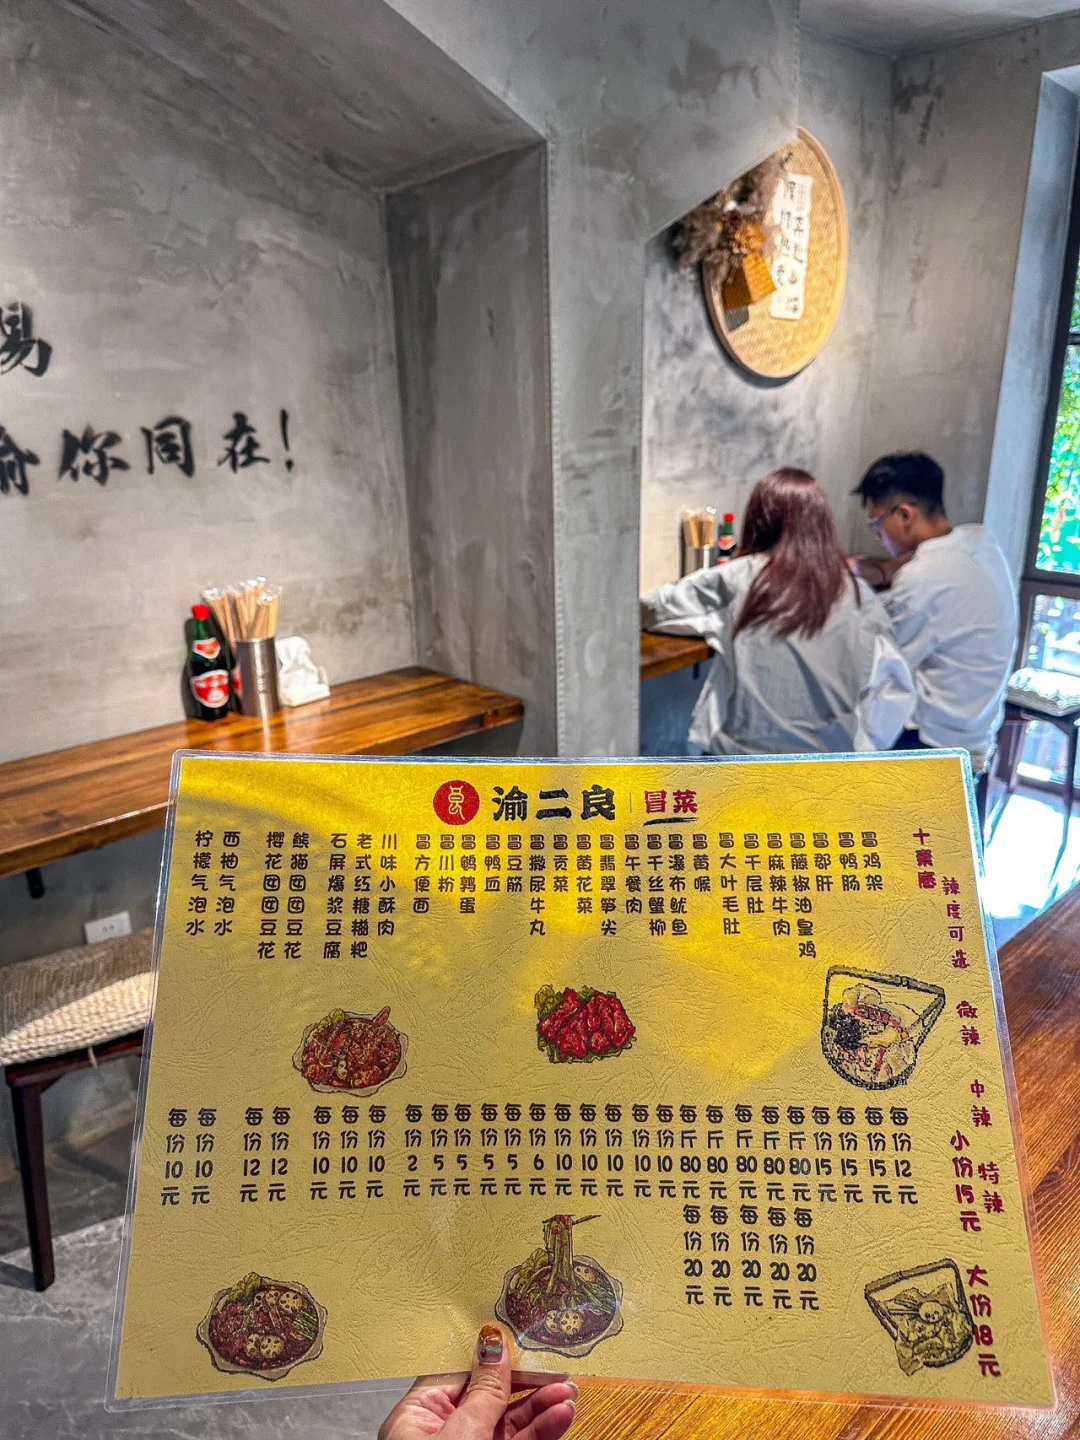 你同在！
渝二良 冒菜
辣度可选 微辣 中辣 特辣
小份15元 大份18元
冒鸡架 每份12元
冒鸭肠 每份15元
冒郡肝 每份15元
冒藤椒油皇鸡 每份15元
冒麻辣牛肉 每斤80元 每份20元
冒千层肚 每斤80元 每份20元
冒大叶毛肚 每斤80元 每份20元
冒黄喉 每斤80元 每份20元
冒瀑布鱿鱼 每斤80元 每份20元
冒千丝蟹柳 每份10元
冒午餐肉 每份10元
冒翡翠笋尖 每份10元
冒黄花菜 每份10元
冒贡菜 每份10元
冒撒尿牛丸 每份6元
冒豆筋 每份5元
冒鸭血 每份5元
冒鹌鹑蛋 每份5元
冒川粉 每份5元
冒方便面 每份2元
川味小酥肉 每份10元
老式红糖糍粑 每份10元
石屏爆浆豆腐 每份10元
熊猫团团豆花 每份12元
樱花团团豆花 每份12元
西柚气泡水 每份10元
柠檬气泡水 每份10元